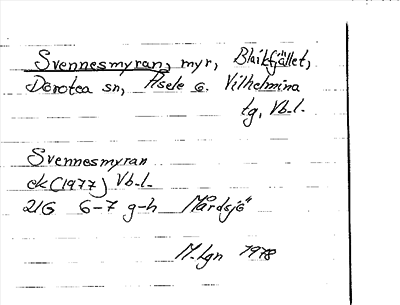 Svennesmyran, myr, Blaikfjället,
Dorotea sn, Åsele o. Vilhelmina
tg, Vb-l.
Svennesmyran
ek (1977) Vb-l.
21G 6-7 g-h Mårdsjö
M. Lgn 1978